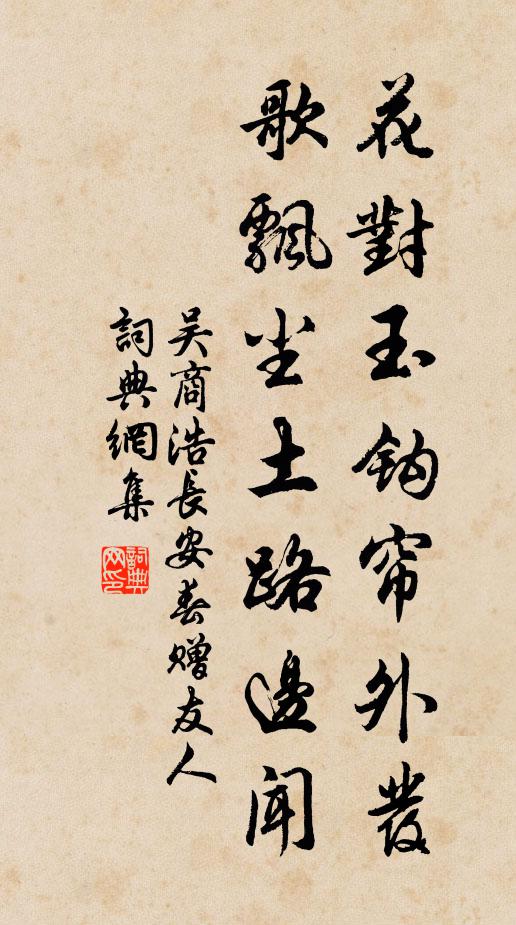 花對玉鈎帘外發
歌飄尘土路邊聞
吴商浩長安春赠友人
詞典網集
詞典網印